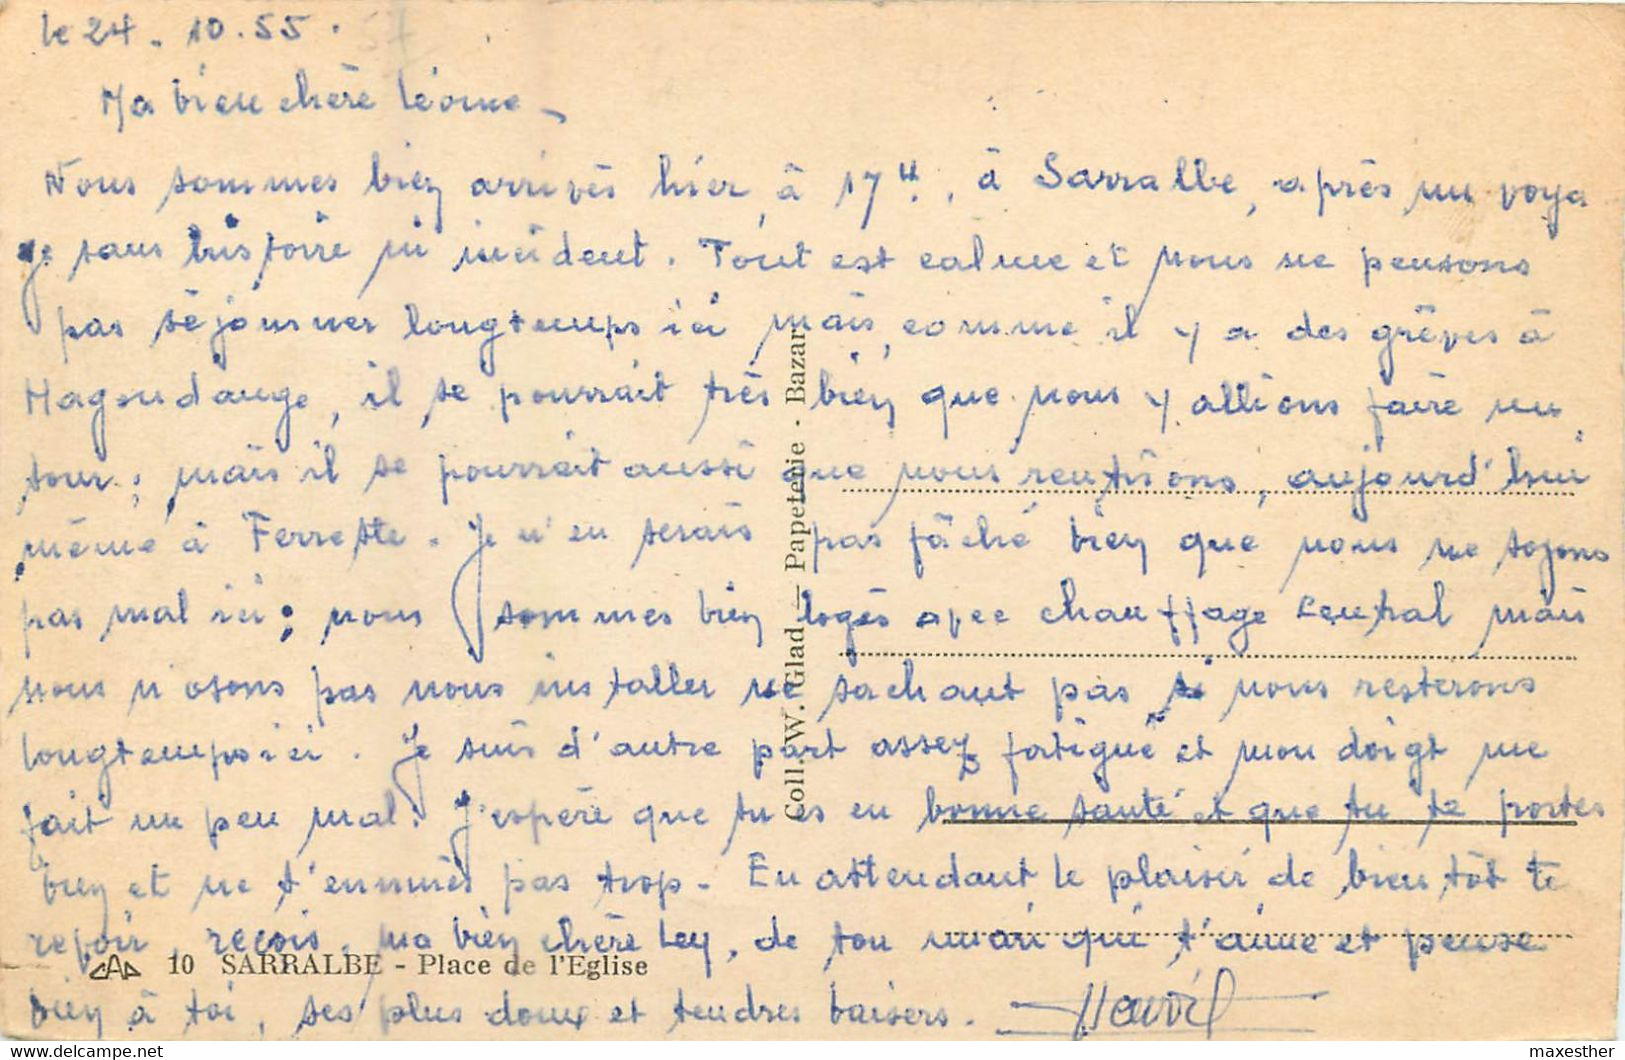 le 24. 10. 55.
Ma bien chère Léonie -
Nous sommes bien arrivés hier, à 17H, à Sarralbe, après un voya
ge sans histoire ni incident. Tout est calme et nous ne pensons
pas séjourner longtemps ici mais, comme il y a des grèves à
Hagondange, il se pourrait très bien que nous y allions faire un
tour; mais il se pourrait aussi que nous rentrions, aujourd'hui
même à Ferrette. Je n'en serais pas fâché bien que nous ne soyons
pas mal ici; nous sommes bien logés avec chauffage central mais
nous n'osons pas nous installer ne sachant pas si nous resterons
longtemps ici. Je suis d'autre part assez fatigué et mon doigt me
fait un peu mal. J'espère que tu es en bonne santé et que tu te portes
bien et ne t'ennuies pas trop. En attendant le plaisir de bientôt te
revoir, reçois, ma bien chère Ley, de ton mari qui t'aime et pense
bien à toi, ses plus doux et tendres baisers.
Coll. W. Glad — Papeterie - Bazar
CAP 10 SARRALBE - Place de l'Eglise
https://www.delcampe.net
maxesther